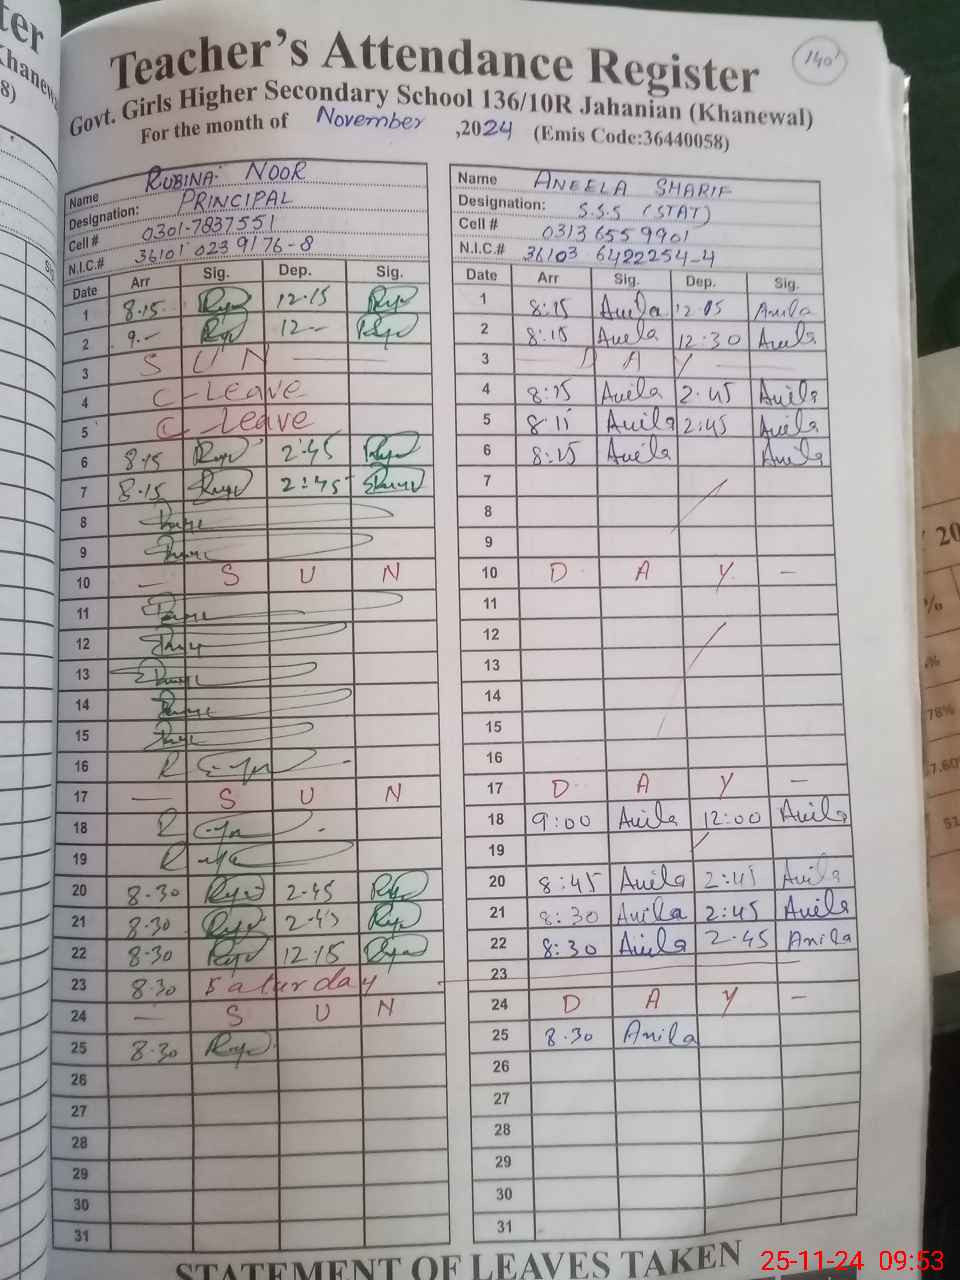 ter
Khanew
8)
140
Teacher's Attendance Register
Govt. Girls Higher Secondary School 136/10R Jahanian (Khanewal)
For the month of November ,2024 (Emis Code:36440058)
Name RUBINA NOOR
Designation: PRINCIPAL
Cell # 0301-7837551
N.I.C.# 36101 0239176-8
Date Arr Sig. Dep. Sig.
1 8.15 12.15
2 9.- 12-
3 S U N
4 C-Leave
5 C Leave
6 8.15 2.45
7 8.15 2:45
8
9
10 — S U N
11
12
13
14
15
16
17 — S U N
18
19
20 8.30 2.45
21 8.30 2.45
22 8.30 12.15
23 8.30 Saturday
24 — S U N
25 8.30
26
27
28
29
30
31
Name ANEELA SHARIF
Designation: S.S.S (STAT)
Cell # 0313 6559901
N.I.C.# 36103 6422254-4
Date Arr Sig. Dep. Sig.
1 8:15 Anila 12:05 Anila
2 8:15 Anila 12:30 Anila
3 — D A Y —
4 8:15 Anila 2:45 Anila
5 8:15 Anila 2:45 Anila
6 8:15 Anila Anila
7
8
9
10 D A Y —
11
12
13
14
15
16
17 D A Y —
18 9:00 Anila 12:00 Anila
19
20 8:45 Anila 2:45 Anila
21 8:30 Anila 2:45 Anila
22 8:30 Anila 2.45 Anila
23
24 D A Y —
25 8.30 Anila
26
27
28
29
30
31
STATEMENT OF LEAVES TAKEN
20
%
%
78%
7.60
51
25-11-24 09:53